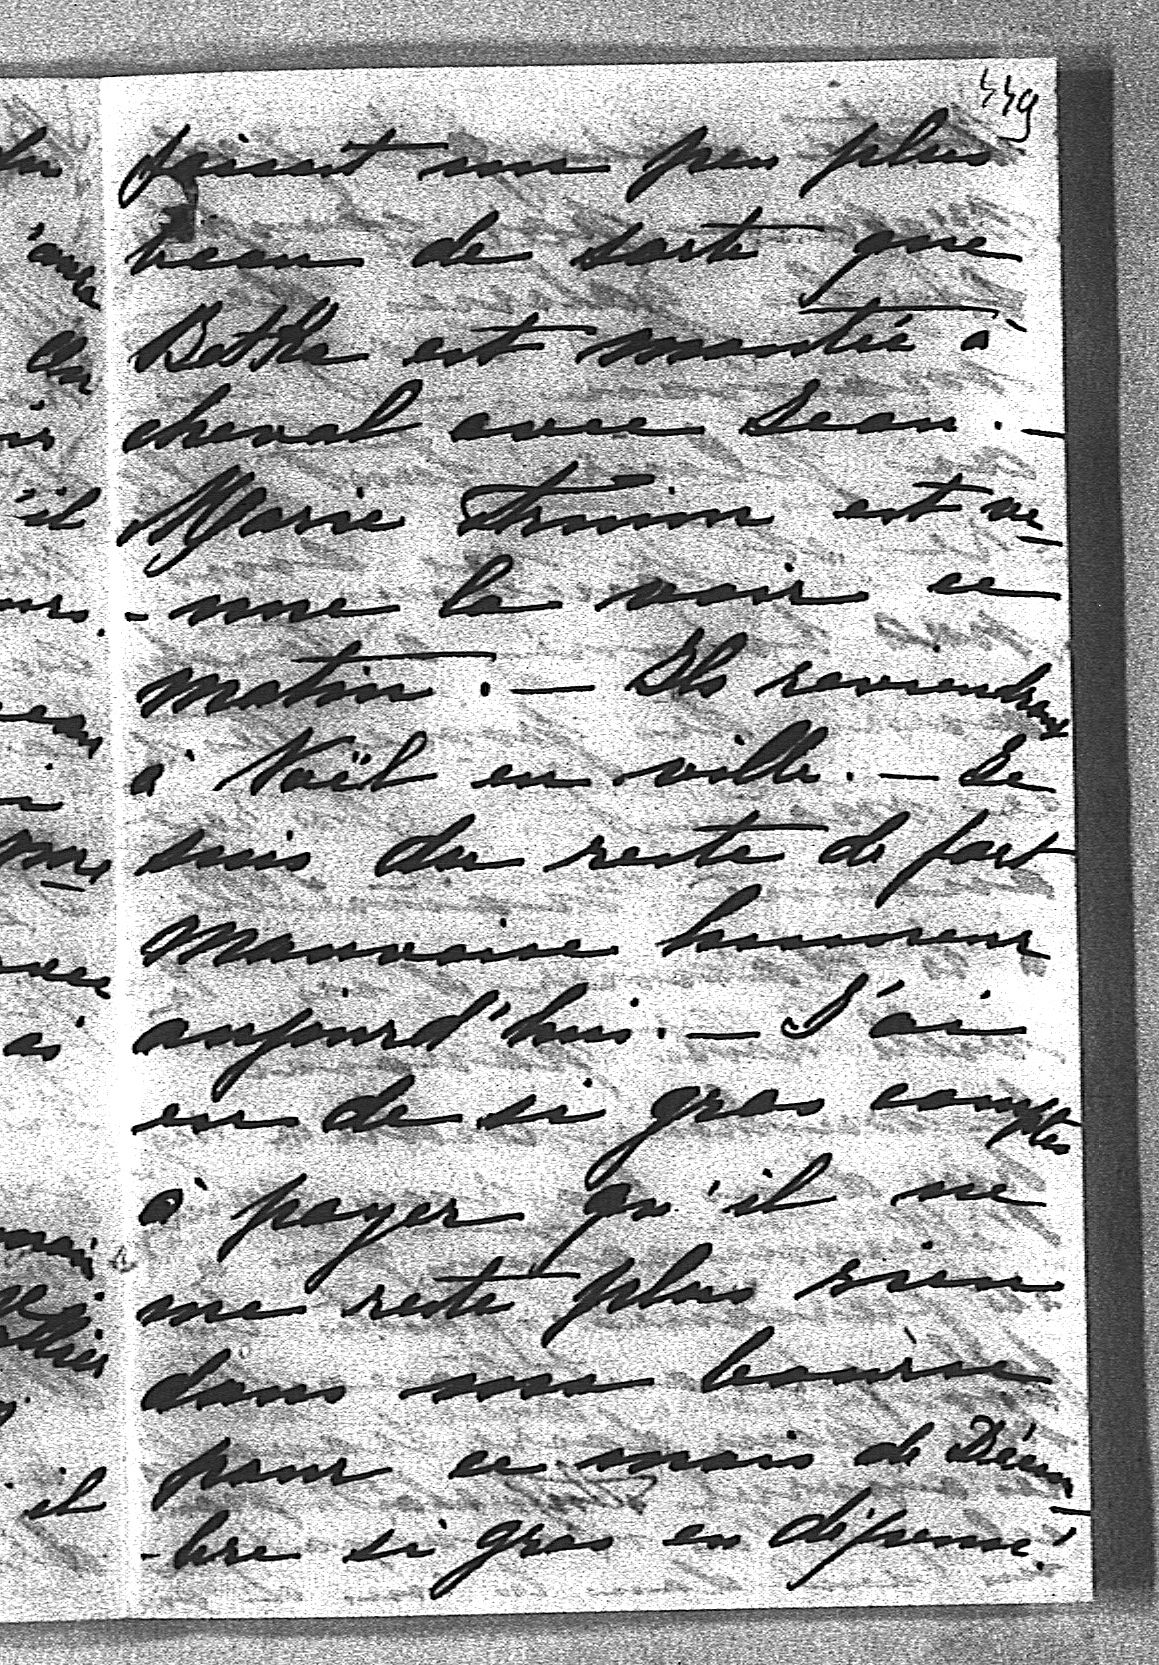 449
faisait un peu plus
beau de sorte que
Bethe est montée à
cheval avec Jean. —
Marie est ve-
-nue la voir ce
matin. — Ils reviendront
à Noël en ville. — Je
suis du reste de fort
mauvaise humeur
aujourd'hui. — J'ai
eu de si gros comptes
à payer qu'il ne
me reste plus rien
dans ma bourse
pour ce mois de Décem-
-bre si gros en dépense!